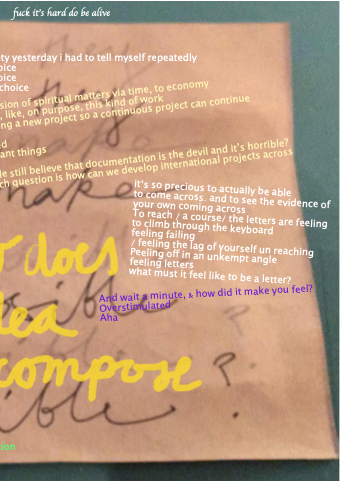 fuck it's hard do be alive
ty yesterday i had to tell myself repeatedly
oice
oice
choice
sion of spiritual matters via time, to economy
, like, on purpose, this kind of work
ng a new project so a continuous project can continue
d
ant things
le still believe that documentation is the devil and it's horrible?
ch question is how can we develop international projects across
it's so precious to actually be able
to come across. and to see the evidence of
your own coming across
To reach / a course/ the letters are feeling
to climb through the keyboard
feeling failing
/ feeling the lag of yourself un reaching
Peeling off in an unkempt angle
feeling letters
what must it feel like to be a letter?
does
ea
compose
ible ?
And wait a minute, & how did it make you feel?
Overstimulated
Aha
ion